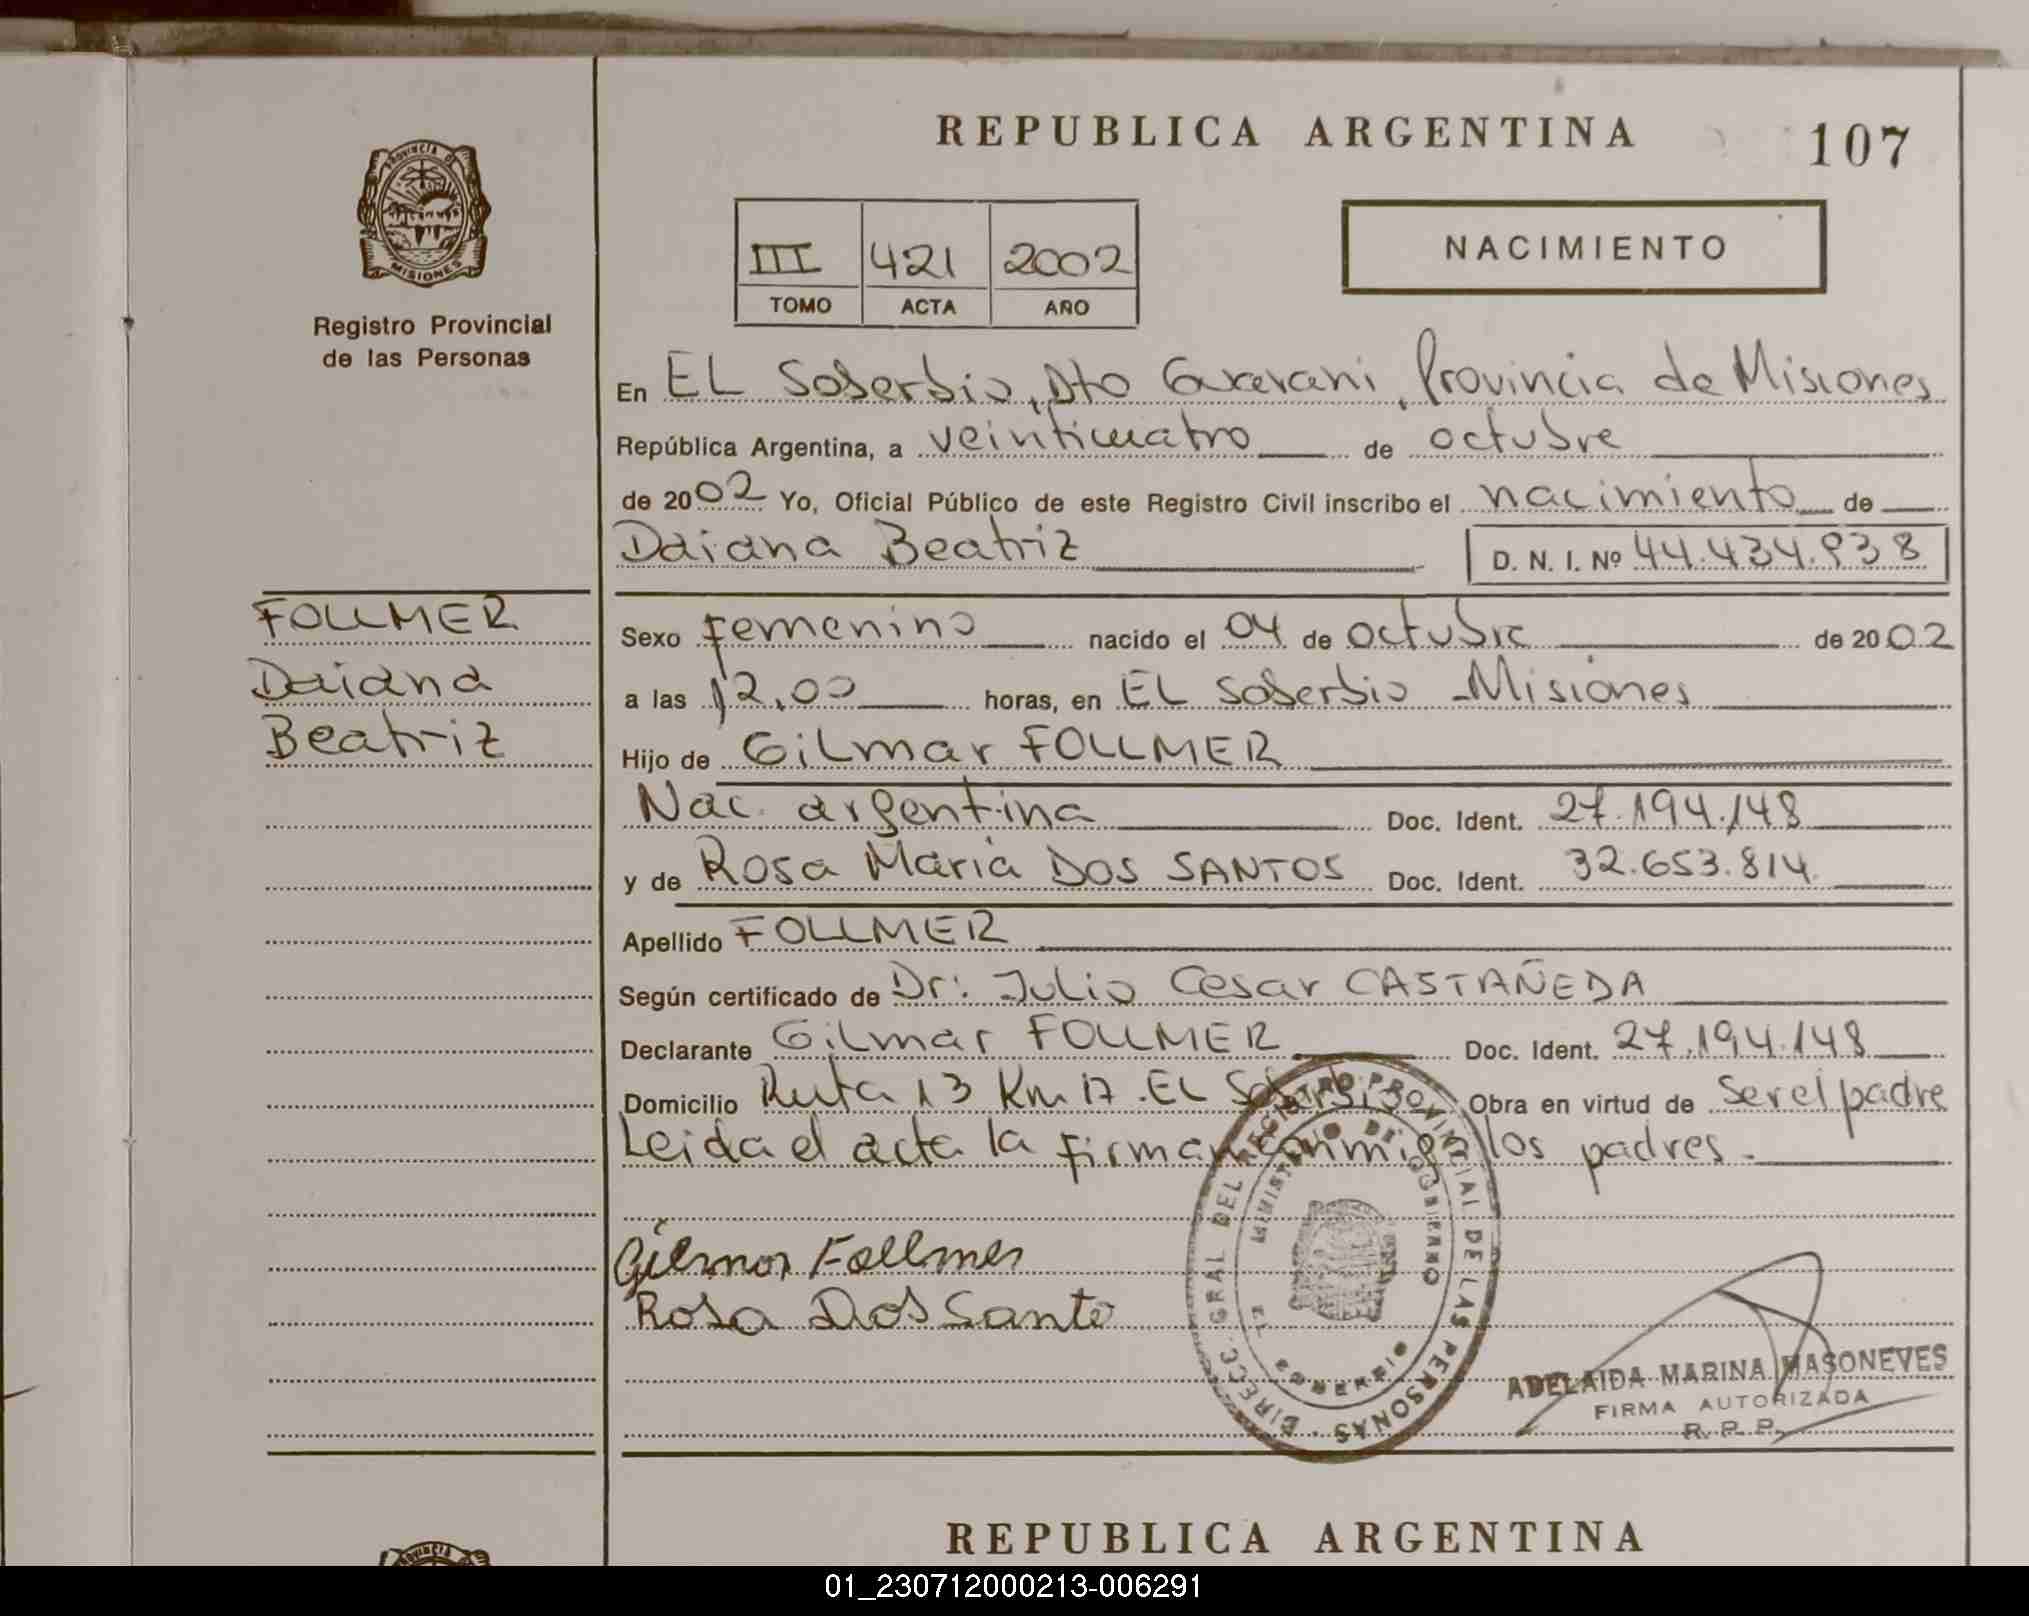 REPUBLICA ARGENTINA
107
PROVINCIA DE
MISIONES
Registro Provincial
de las Personas
III 421 2002
TOMO ACTA AÑO
NACIMIENTO
En EL Soberbio, Dto Guarani, Provincia de Misiones
República Argentina, a veinticuatro de octubre
de 2002 Yo, Oficial Público de este Registro Civil inscribo el nacimiento de
Daiana Beatriz D. N. I. Nº 44.434.938
FOLLMER
Daiana
Beatriz
Sexo femenino nacido el 04 de octubre de 2002
a las 12,00 horas, en EL Soberbio - Misiones
Hijo de Gilmar FOLLMER
Nac. argentina Doc. Ident. 27.194.148
y de Rosa Maria DOS SANTOS Doc. Ident. 32.653.814
Apellido FOLLMER
Según certificado de Dr: Julio Cesar CASTAÑEDA
Declarante Gilmar FOLLMER Doc. Ident. 27.194.148
Domicilio Ruta 13 Km 17 . EL Soberbio Obra en virtud de ser el padre
Leida el acta la firman conmigo los padres.
Gilmar Follmer
Rosa Dos Santo
DIRECC. GRAL DEL REGISTRO PROVINCIAL DE LAS PERSONAS
MINISTERIO DE GOBIERNO
EL SOBERBIO
ADELAIDA MARINA MASONEVES
FIRMA AUTORIZADA
R. P. P.
REPUBLICA ARGENTINA
PROVINCIA
01_230712000213-006291